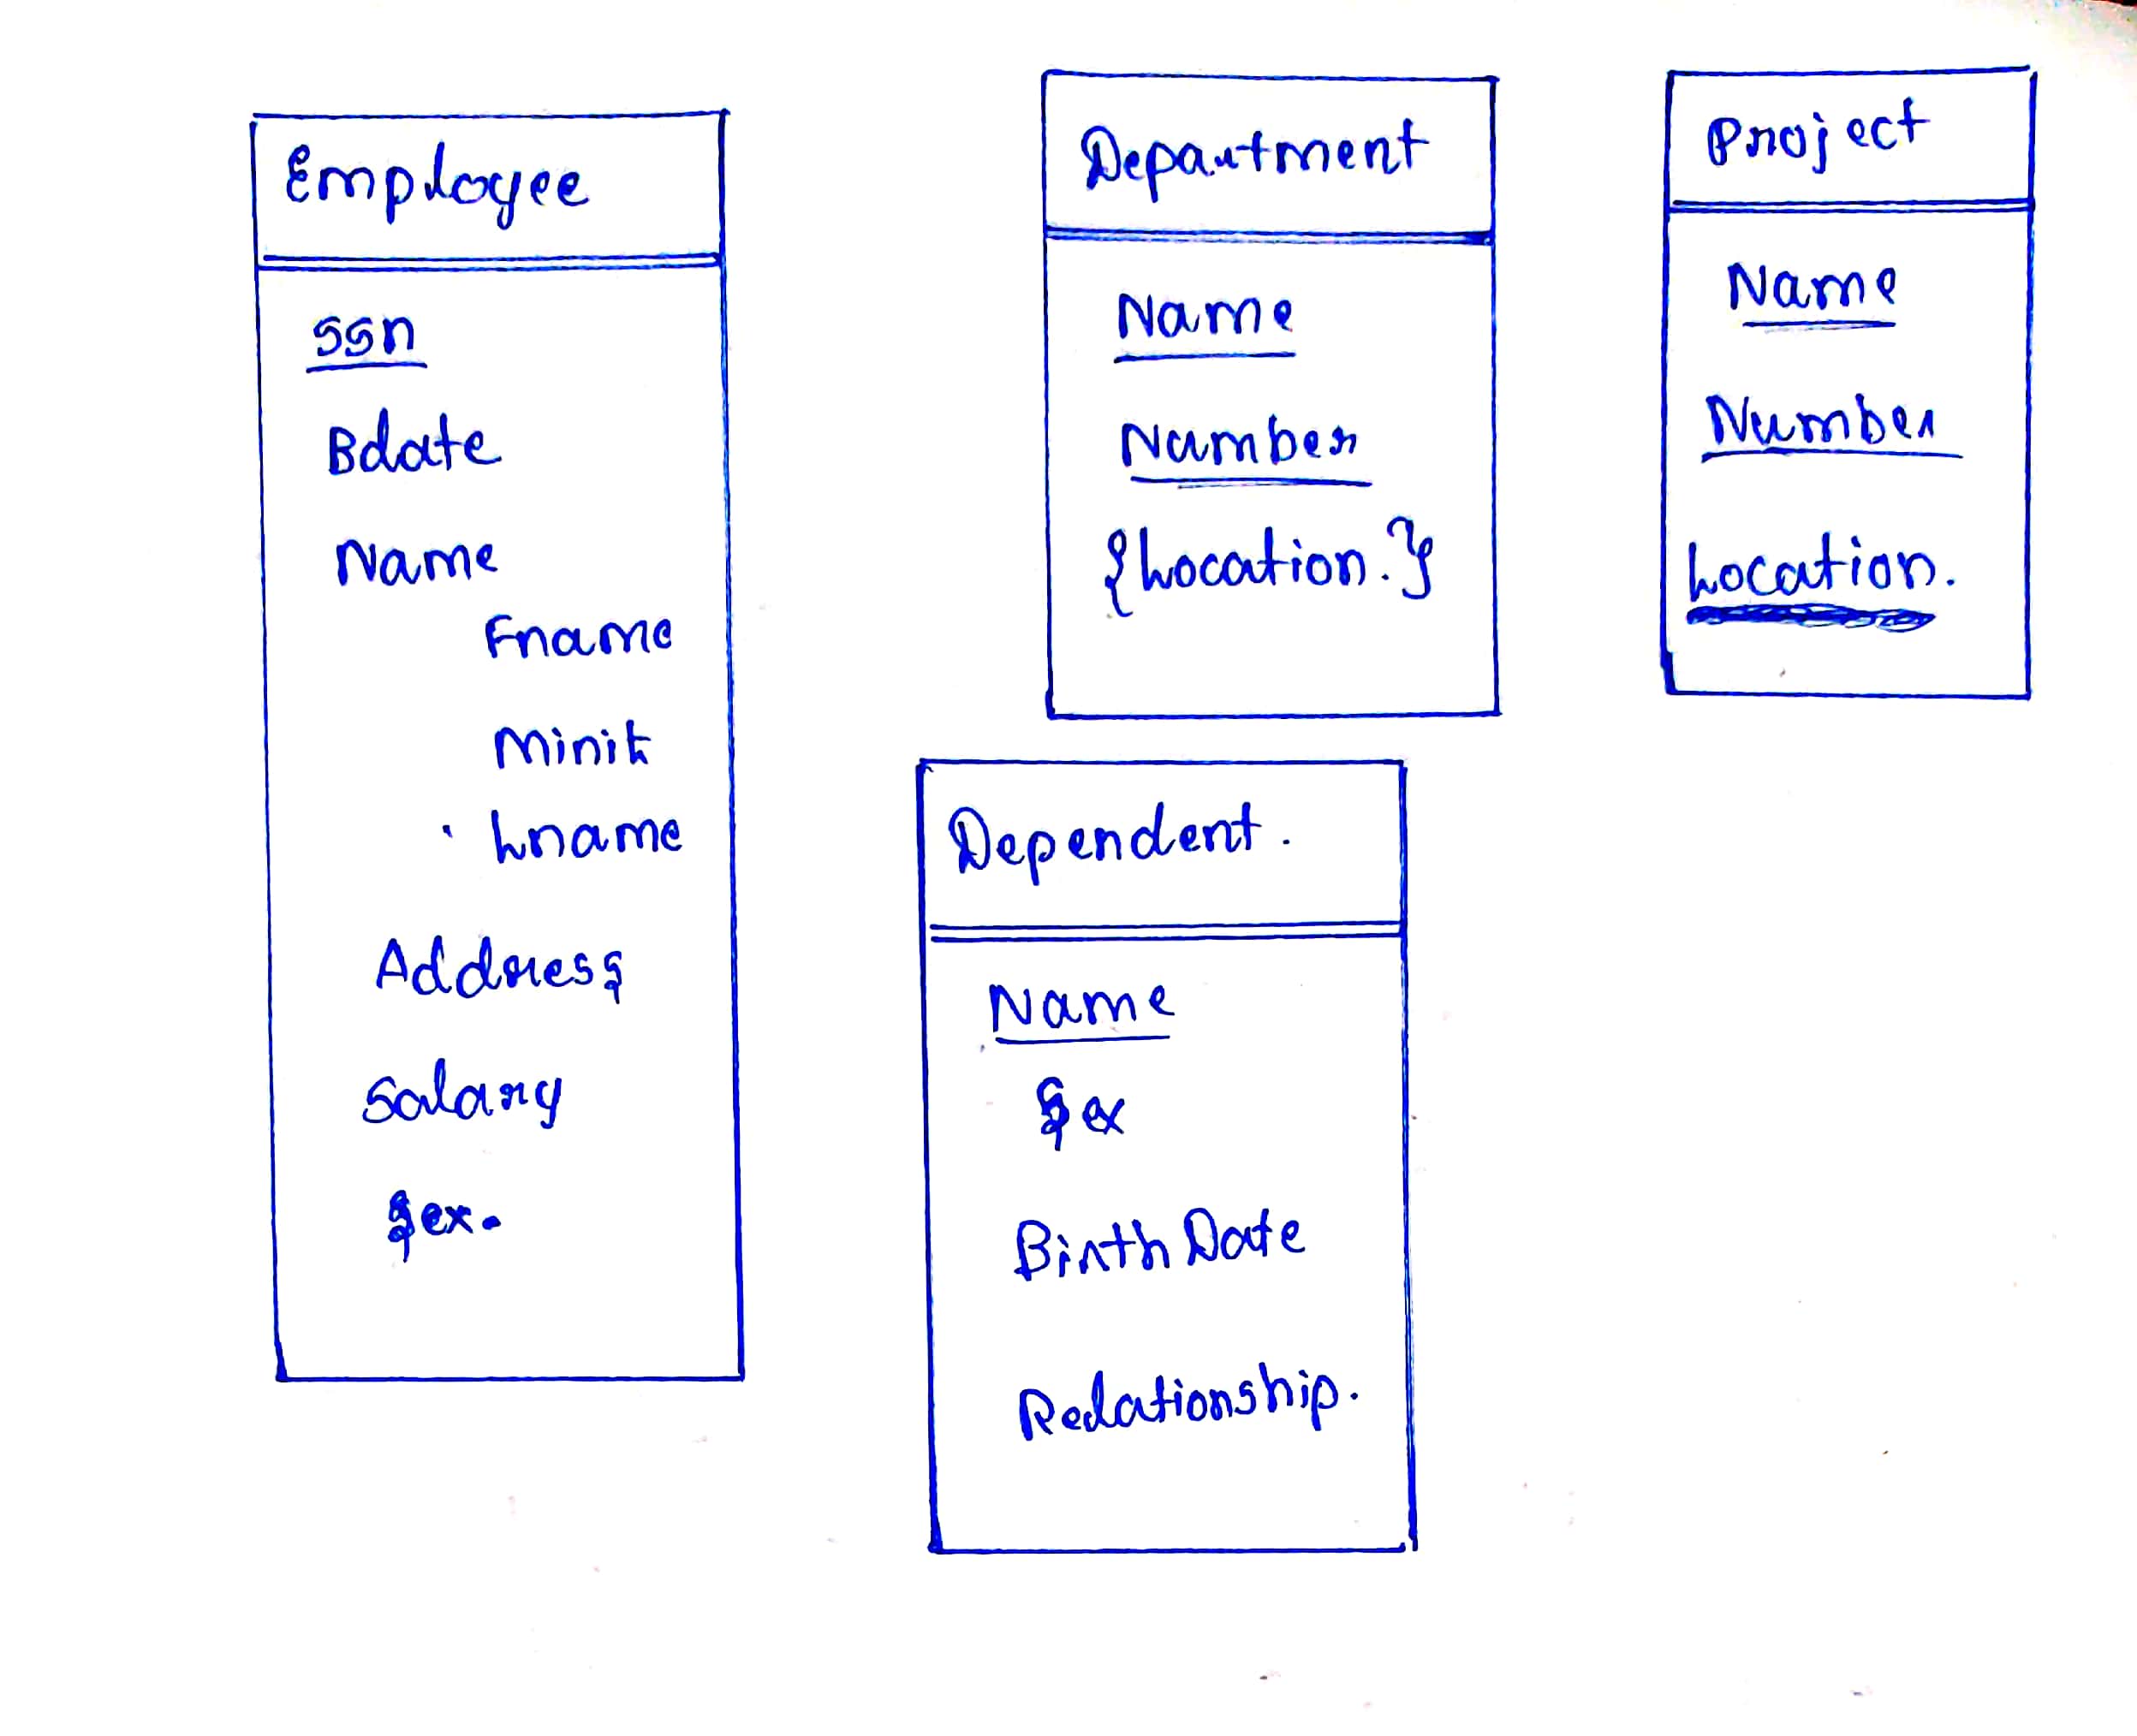 Employee
ssn
Bdate
Name
Fname
Minit
Lname
Address
Salary
Sex.
Department
Name
Number
{Location.}
Project
Name
Number
Location.
Dependent.
Name
Sex
Birth Date
Relationship.